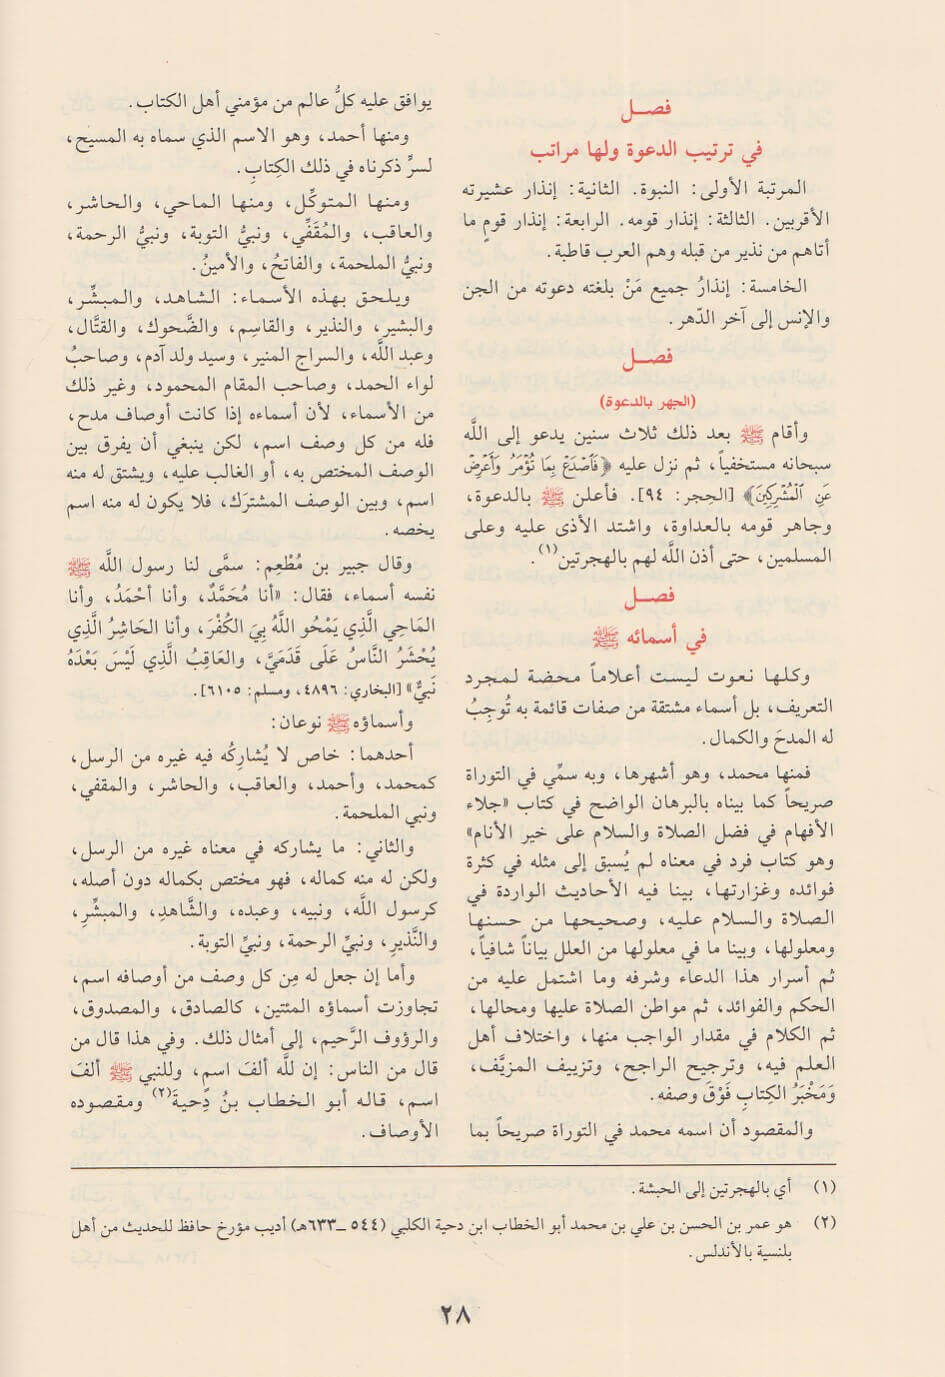 فصـل
في ترتيب الدعوة ولها مراتب
المرتبة الأولى: النبوة. الثانية: إنذار عشيرته
الأقربين. الثالثة: إنذار قومه. الرابعة: إنذار قومٍ ما
أتاهم من نذير من قبله وهم العرب قاطبة.
الخامسة: إنذارُ جميع مَنْ بلغته دعوته من الجن
والإنس إلى آخر الدّهر.
فصـل
(الجهر بالدعوة)
وأقام ﷺ بعد ذلك ثلاث سنين يدعو إلى اللَّه
سبحانه مستخفياً، ثم نزل عليه ﴿فَٱصْدَعْ بِمَا تُؤْمَرُ وَأَعْرِضْ
عَنِ ٱلْمُشْرِكِينَ﴾ [الحِجر: ٩٤]. فأعلن ﷺ بالدعوة،
وجاهر قومه بالعداوة، واشتد الأذى عليه وعلى
المسلمين، حتى أذن اللَّه لهم بالهجرتين(١).
فصـل
في أسمائه ﷺ
وكلها نعوت ليست أعلاماً محضة لمجرد
التعريف، بل أسماء مشتقة من صفات قائمة به تُوجِبُ
له المدحَ والكمال.
فمنها محمد، وهو أشهرها، وبه سمِّي في التوراة
صريحاً كما بيناه بالبرهان الواضح في كتاب «جلاء
الأفهام في فضل الصلاة والسلام على خير الأنام»
وهو كتاب فرد في معناه لم يُسبق إلى مثله في كثرة
فوائده وغزارتها، بينا فيه الأحاديث الواردة في
الصلاة والسلام عليه، وصحيحها من حسنها
ومعلولها، وبينا ما في معلولها من العلل بياناً شافياً،
ثم أسرار هذا الدعاء وشرفه وما اشتمل عليه من
الحكم والفوائد، ثم مواطن الصلاة عليها ومحالها،
ثم الكلام في مقدار الواجب منها، واختلاف أهل
العلم فيه، وترجيح الراجح، وتزييف المزيَّف،
وَمَخْبَرُ الكِتابِ فَوْقَ وصفه.
والمقصود أن اسمه محمد في التوراة صريحاً بما
يوافق عليه كلُّ عالم من مؤمني أهل الكتاب.
ومنها أحمد، وهو الاسم الذي سماه به المسيح،
لسرٍّ ذكرناه في ذلك الكِتابِ.
ومنها المتوكِّل، ومنها الماحي، والحاشر،
والعاقب، والمُقَفِّي، ونبيُّ التوبة، ونبيُّ الرحمة،
ونبيُّ الملحمة، والفاتحُ، والأمينُ.
ويلحق بهذه الأسماء: الشاهد، والمبشِّر،
والبشير، والنذير، والقاسِم، والضَّحوك، والقتَّال،
وعبد اللَّه، والسراج المنير، وسيد ولد آدم، وصاحبُ
لواء الحمد، وصاحب المقام المحمود، وغير ذلك
من الأسماء، لأن أسماءه إذا كانت أوصاف مدح،
فله من كل وصف اسم، لكن ينبغي أن يفرق بين
الوصف المختص به، أو الغالب عليه، ويشتق له منه
اسم، وبين الوصف المشترَك، فلا يكون له منه اسم
يخصه.
وقال جبير بن مُطْعِم: سمَّى لنا رسول اللَّه ﷺ
نفسه أسماء، فقال: «أنا مُحَمَّدٌ، وأنا أحْمَدُ، وأنا
المَاحِي الَّذِي يَمْحُو اللَّهُ بِيَ الكُفْرَ، وأنا الحَاشِرُ الَّذِي
يُحْشَرُ النَّاسُ عَلَى قَدَمَيَّ، والعَاقِبُ الَّذِي لَيْسَ بَعْدَهُ
نَبيٌّ» [البخاري: ٤٨٩٦، ومسلم: ٦١٠٥].
وأسماؤه ﷺ نوعان:
أحدهما: خاص لا يُشاركُه فيه غيره من الرسل،
كمحمد، وأحمد، والعاقب، والحاشر، والمقفي،
ونبي الملحمة.
والثاني: ما يشاركه في معناه غيره من الرسل،
ولكن له منه كماله، فهو مختص بكماله دون أصله،
كرسول اللَّه، ونبيه، وعبده، والشَّاهدِ، والمبشِّرِ،
والنَّذيرِ، ونبيِّ الرحمة، ونبيِّ التوبة.
وأما إن جعل له مِن كل وصف من أوصافه اسم،
تجاوزت أسماؤه المئتين، كالصادق، والمصدوق،
والرؤوف الرَّحيم، إلى أمثال ذلك. وفي هذا قال من
قال من الناس: إن للَّه ألفَ اسم، وللنبي ﷺ ألفَ
اسم، قاله أبو الخطاب بنُ دِحيةَ(٢) ومقصوده
الأوصاف.
(١) أي بالهجرتين إلى الحبشة.
(٢) هو عمر بن الحسن بن علي بن محمد أبو الخطاب ابن دحية الكلبي (٥٤٤ ــ ٦٣٣هـ) أديب مؤرخ حافظ للحديث من أهل
بلنسية بالأندلس.
٢٨